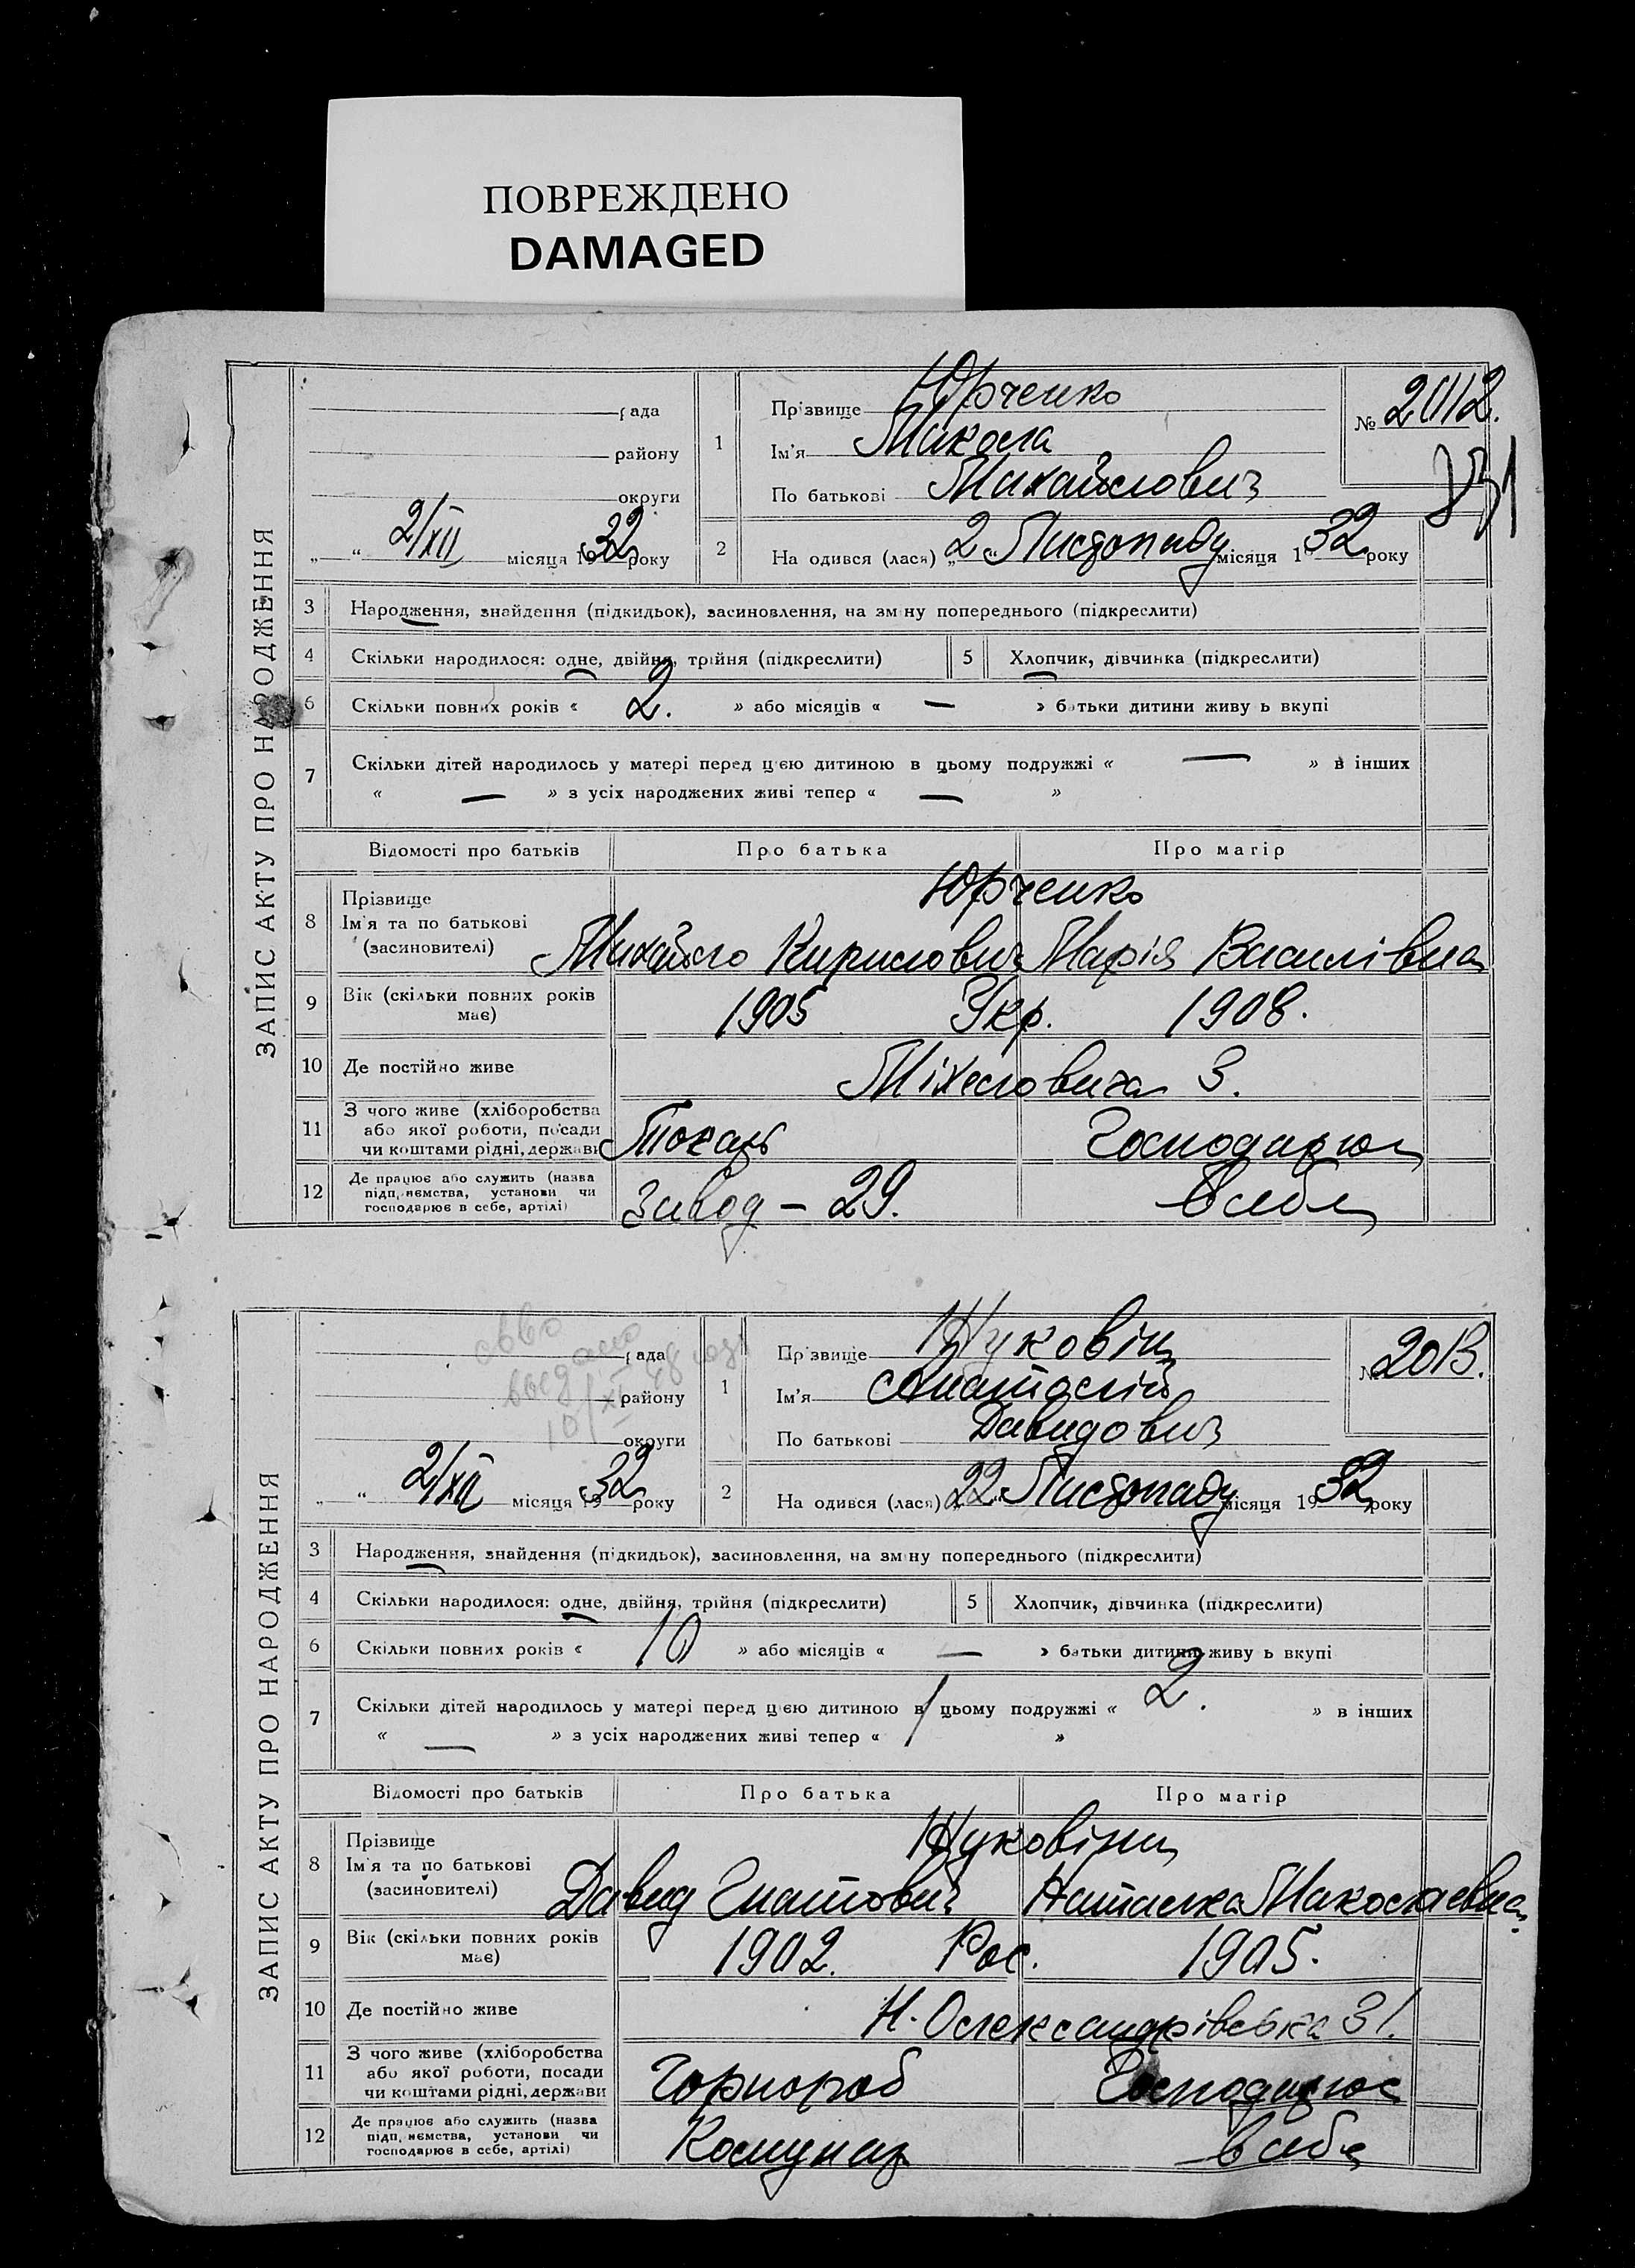 ПОВРЕЖДЕНО
DAMAGED
ЗАПИС АКТУ ПРО НАРОДЖЕННЯ
рада
району
округи
„ “ 2/XII місяця 1932 року
1
Прізвище Юрченко
Ім'я Микола
По батькові Михайлович
№ 2012.
2
На одився (лася) „2“ Листопаду місяця 1932 року
3 Народження, знайдення (підкидьок), засиновлення, на зміну попереднього (підкреслити)
4 Скільки народилося: одне, двійня, трійня (підкреслити)
5 Хлопчик, дівчинка (підкреслити)
6 Скільки повних років « 2. » або місяців « — » батьки дитини живуть вкупі
7 Скільки дітей народилось у матері перед цією дитиною в цьому подружжі « — » в інших
« — » з усіх народжених живі тепер « — »
Відомості про батьків Про батька Про матір
8 Прізвище
Ім'я та по батькові
(засиновителі)
Юрченко
Михайло Кирилович Марія Василівна
9 Вік (скільки повних років
має)
1905 Укр. 1908.
10 Де постійно живе
3.
11 З чого живе (хліборобства
або якої роботи, посади
чи коштами рідні, держави
Токарь Господарює
12 Де працює або служить (назва
підприємства, установи чи
господарює в себе, артілі)
Завод – 29. в себе
ЗАПИС АКТУ ПРО НАРОДЖЕННЯ
рада
району
округи
10/XI 48
„ “ 2/XII місяця 1932 року
1
Прізвище Жуковін
Ім'я Анатолій
По батькові Давидович
№ 2013.
2
На одився (лася) „22“ Листопаду місяця 1932 року
3 Народження, знайдення (підкидьок), засиновлення, на зміну попереднього (підкреслити)
4 Скільки народилося: одне, двійня, трійня (підкреслити)
5 Хлопчик, дівчинка (підкреслити)
6 Скільки повних років « 10 » або місяців « — » батьки дитини живуть вкупі
7 Скільки дітей народилось у матері перед цією дитиною в цьому подружжі « 2. » в інших
« — » з усіх народжених живі тепер « 1 »
Відомості про батьків Про батька Про матір
8 Прізвище
Ім'я та по батькові
(засиновителі)
Жуковіни
Давид Гнатович Наталка Миколаевна
9 Вік (скільки повних років
має)
1902. Рос. 1905.
10 Де постійно живе
Н. Олександрівська 31.
11 З чого живе (хліборобства
або якої роботи, посади
чи коштами рідні, держави
Чорнороб Господарює
12 Де працює або служить (назва
підприємства, установи чи
господарює в себе, артілі)
Комунар в себе